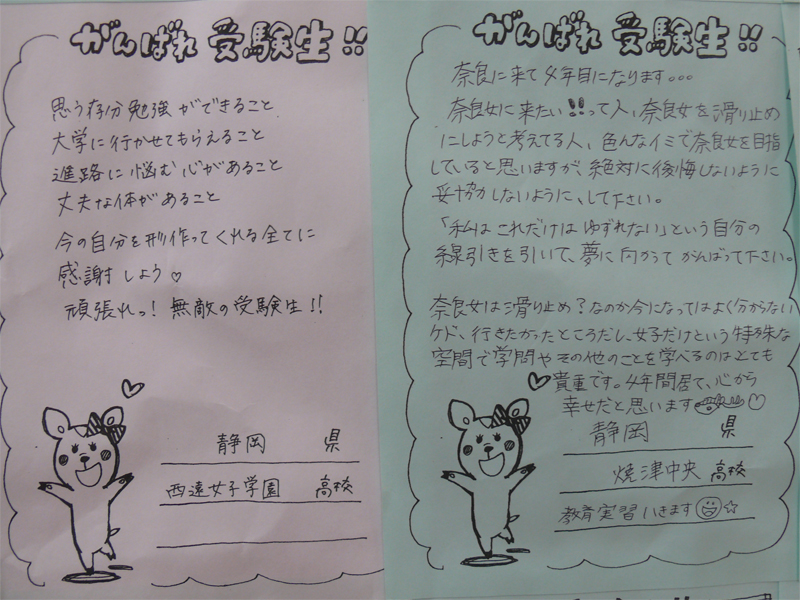 がんばれ 受験生!!
思う存分勉強ができること
大学に行かせてもらえること
進路に悩む心があること
丈夫な体があること
今の自分を形作ってくれる全てに
感謝しよう♡
頑張れっ! 無敵の受験生!!
静岡 県
西遠女子学園 高校
がんばれ 受験生!!
奈良に来て4年目になります。。。
奈良女に来たい!!って人、奈良女を滑り止め
にしようと考えてる人、色んなイミで奈良女を目指
していると思いますが、絶対に後悔しないように
妥協かしないように、して下さい。
「私は これだけは ゆずれない」という自分の
線引きを引いて、夢に向かってがんばって下さい。
奈良女は滑り止め?なのか今になってはよく分からない
ケド、行きたかったところだし、女子だけという特殊な
空間で学問やその他のことを学べるのはとても
貴重です。4年間居て、心から
幸せだと思います♡
静岡 県
焼津中央 高校
教育実習いきます☆